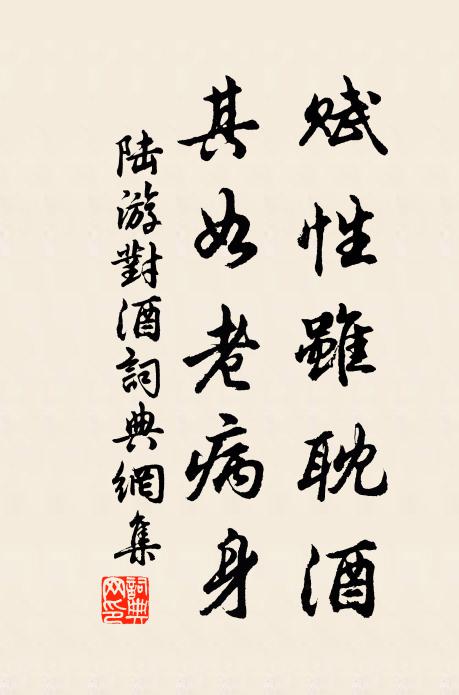 赋性雖耽酒
其如老病身
陆游對酒詞典網集
詞典網印